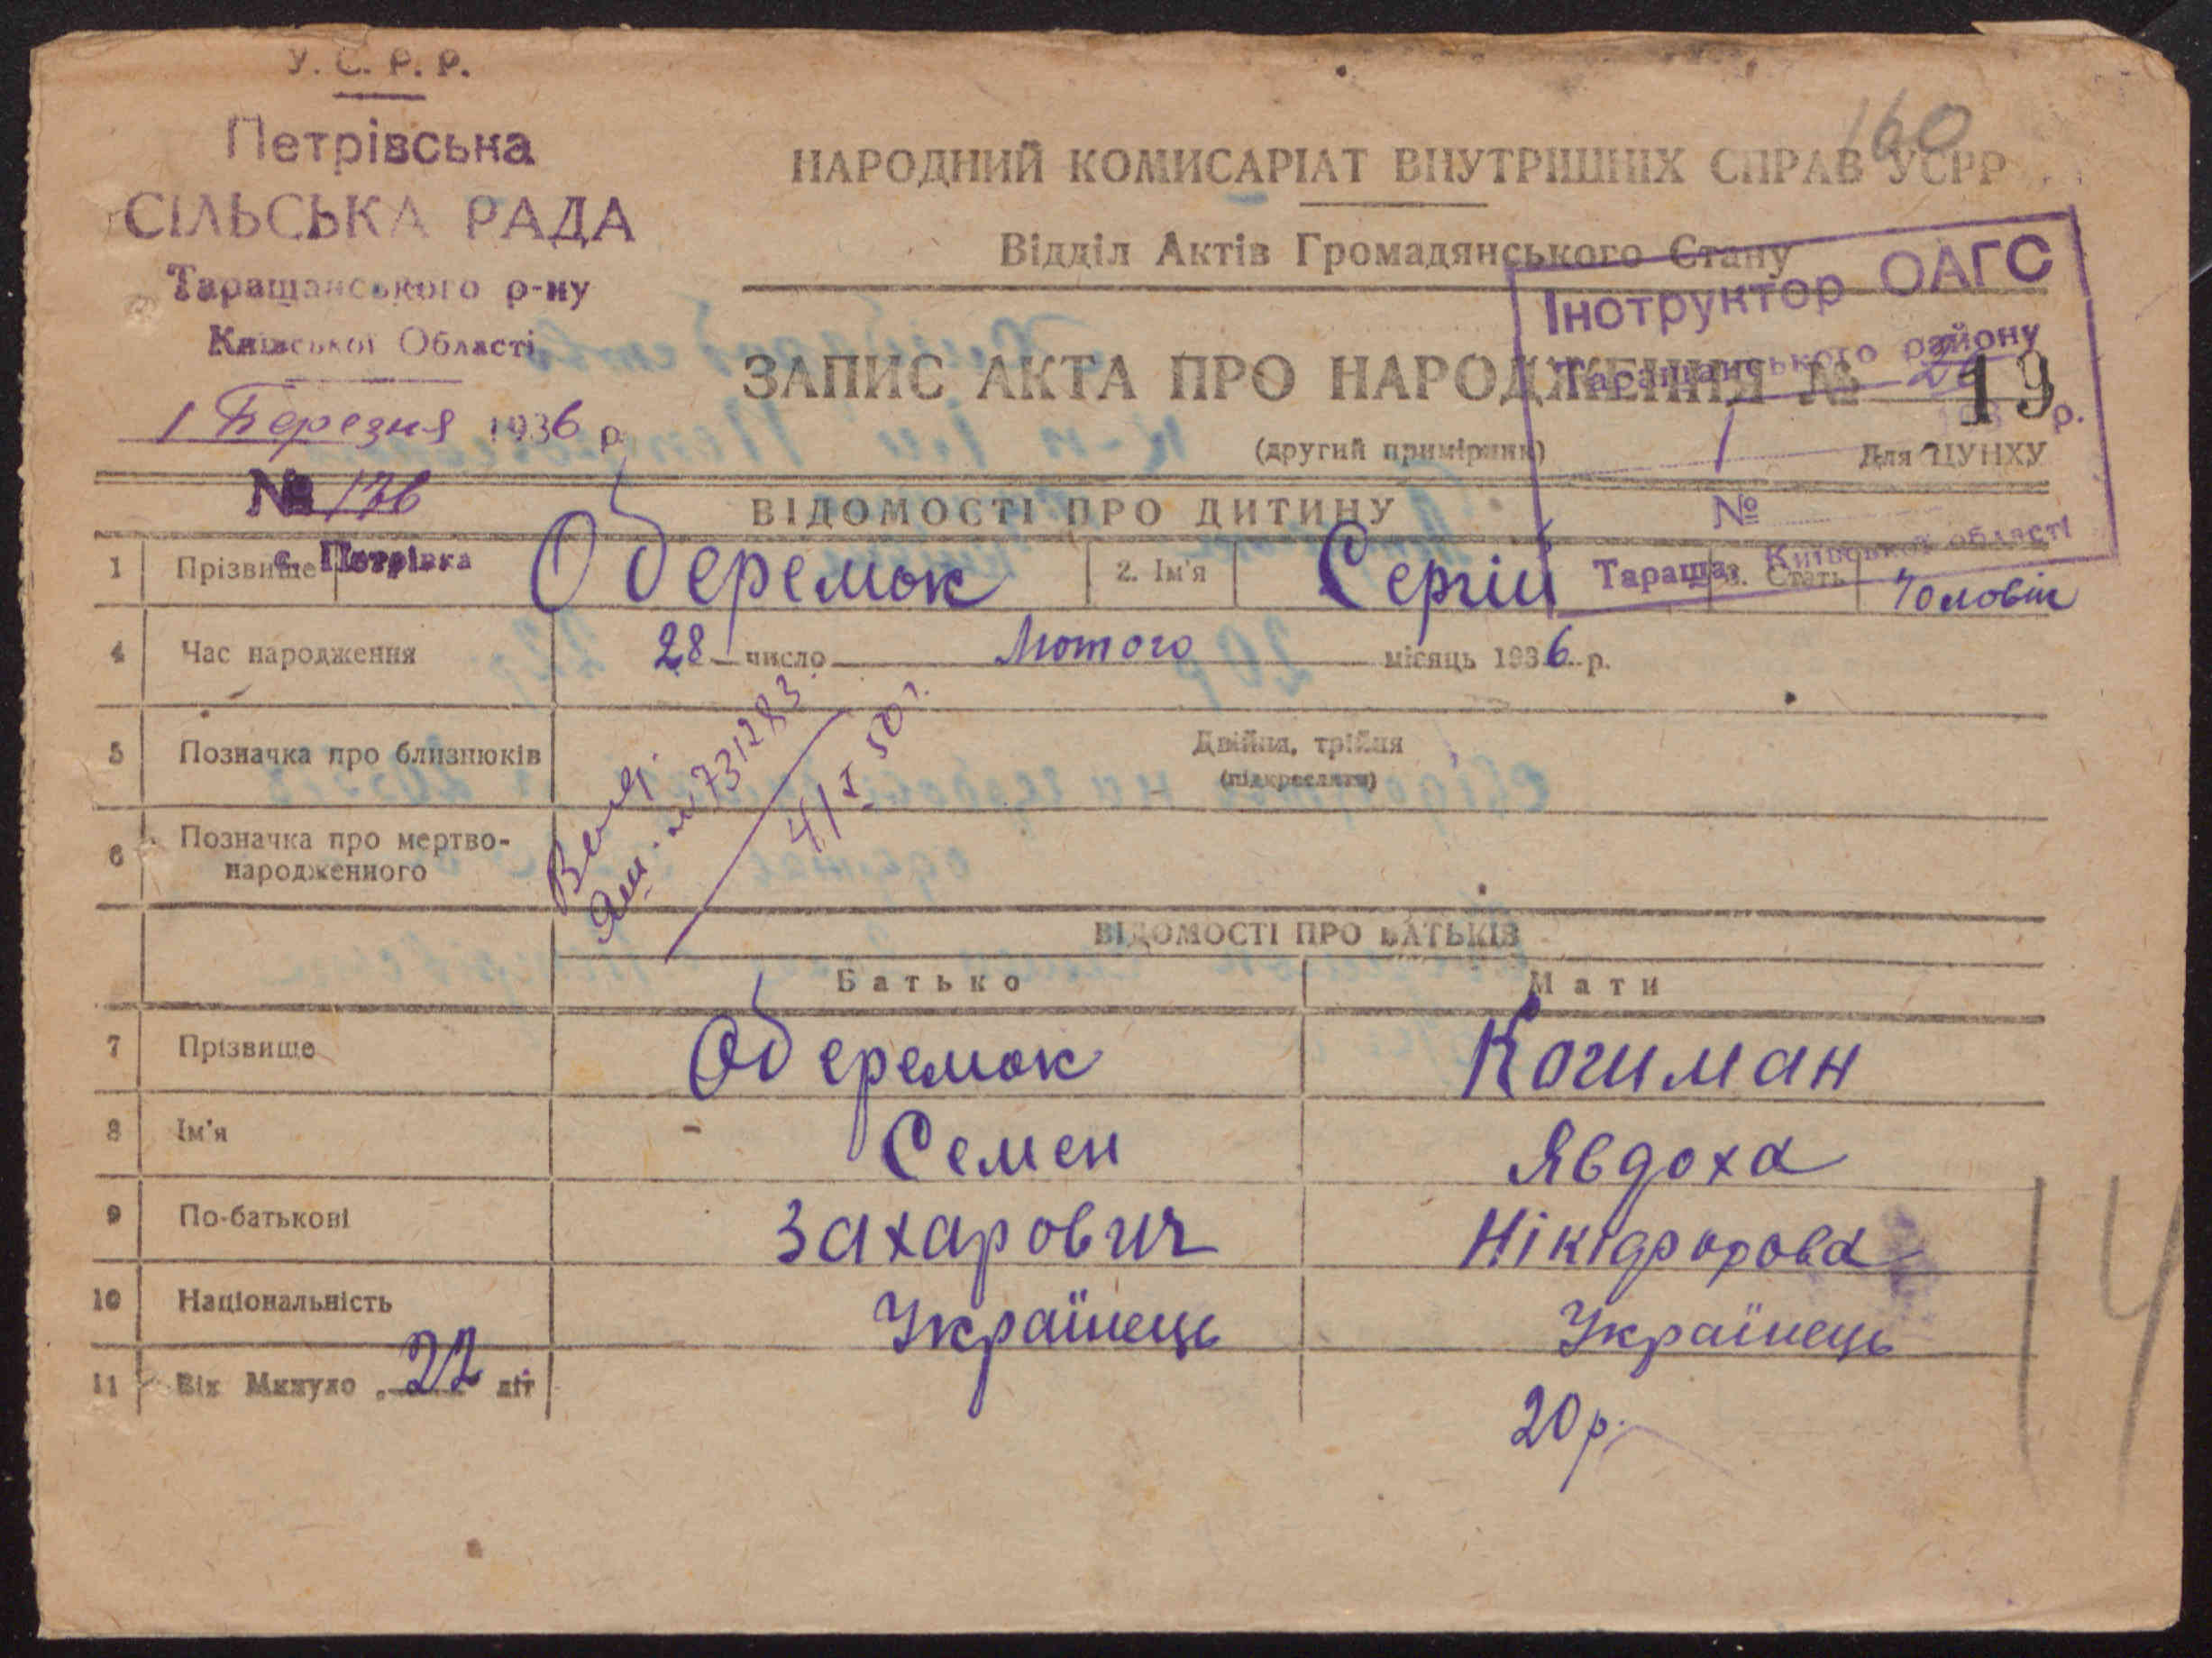 У. С. Р. Р.
Петрівська
СІЛЬСЬКА РАДА
Таращанського р-ну
Київської Області
1 Березня 1936 р.
№ 176
с. Петрівка
160
НАРОДНИЙ КОМИСАРІАТ ВНУТРІШНІХ СПРАВ УСРР
Відділ Актів Громадянського Стану
ЗАПИС АКТА ПРО НАРОДЖЕННЯ №
19
(другий примірник)
Для ЦУНХУ
Інструктор ОАГС
Таращанського району
193 р.
№
Тараща, Київської області
ВІДОМОСТІ ПРО ДИТИНУ
1 Прізвище Оберемок 2. Ім'я Сергій 3. Стать Чоловіч
4 Час народження 28 число Лютого місяць 1936 р.
5 Позначка про близнюків Двійня, трійня
(підкреслити)
6 Позначка про мертво-
народженного
731283
ВІДОМОСТІ ПРО БАТЬКІВ
Батько Мати
7 Прізвище Оберемок Кочиман
8 Ім'я Семен Явдоха
9 По-батькові Захарович Нікіфорова
10 Національність Українець Українець
11 Вік Минуло 22 літ 20 р.
14